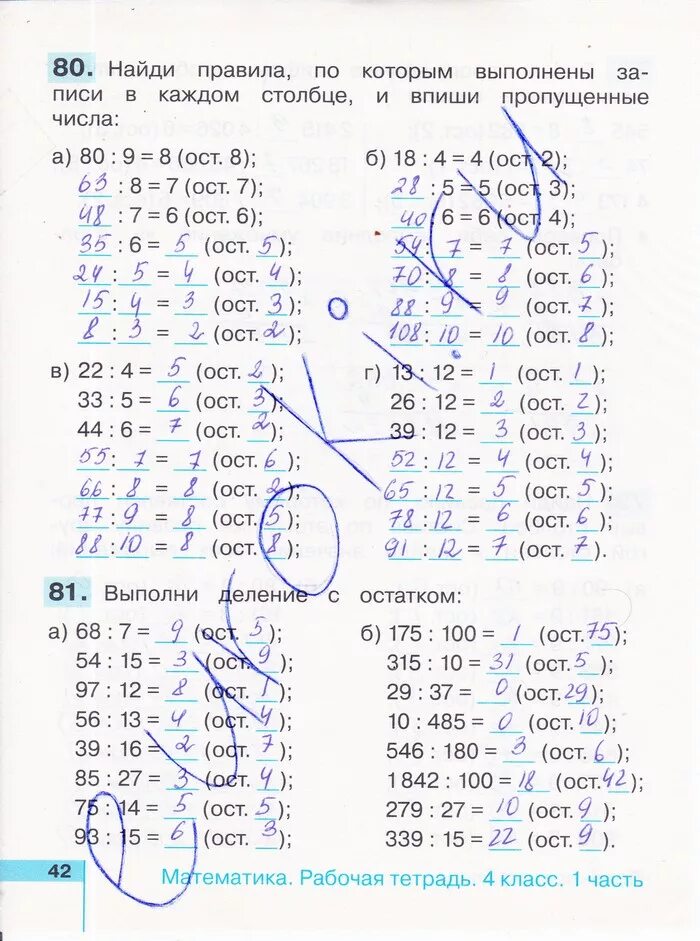 80. Найди правила, по которым выполнены за-
писи в каждом столбце, и впиши пропущенные
числа:
а) 80 : 9 = 8 (ост. 8);
63 : 8 = 7 (ост. 7);
48 : 7 = 6 (ост. 6);
35 : 6 = 5 (ост. 5);
24 : 5 = 4 (ост. 4);
15 : 4 = 3 (ост. 3);
8 : 3 = 2 (ост. 2);
б) 18 : 4 = 4 (ост. 2);
28 : 5 = 5 (ост. 3);
40 : 6 = 6 (ост. 4);
54 : 7 = 7 (ост. 5);
70 : 8 = 8 (ост. 6);
88 : 9 = 9 (ост. 7);
108 : 10 = 10 (ост. 8);
в) 22 : 4 = 5 (ост. 2);
33 : 5 = 6 (ост. 3);
44 : 6 = 7 (ост. 2);
55 : 7 = 7 (ост. 6);
66 : 8 = 8 (ост. 2);
77 : 9 = 8 (ост. 5);
88 : 10 = 8 (ост. 8);
г) 13 : 12 = 1 (ост. 1);
26 : 12 = 2 (ост. 2);
39 : 12 = 3 (ост. 3);
52 : 12 = 4 (ост. 4);
65 : 12 = 5 (ост. 5);
78 : 12 = 6 (ост. 6);
91 : 12 = 7 (ост. 7).
81. Выполни деление с остатком:
а) 68 : 7 = 9 (ост. 5);
54 : 15 = 3 (ост. 9);
97 : 12 = 8 (ост. 1);
56 : 13 = 4 (ост. 4);
39 : 16 = 2 (ост. 7);
85 : 27 = 3 (ост. 4);
75 : 14 = 5 (ост. 5);
93 : 15 = 6 (ост. 3);
б) 175 : 100 = 1 (ост. 75);
315 : 10 = 31 (ост. 5);
29 : 37 = 0 (ост. 29);
10 : 485 = 0 (ост. 10);
546 : 180 = 3 (ост. 6);
1 842 : 100 = 18 (ост. 42);
279 : 27 = 10 (ост. 9);
339 : 15 = 22 (ост. 9).
42
Математика. Рабочая тетрадь. 4 класс. 1 часть